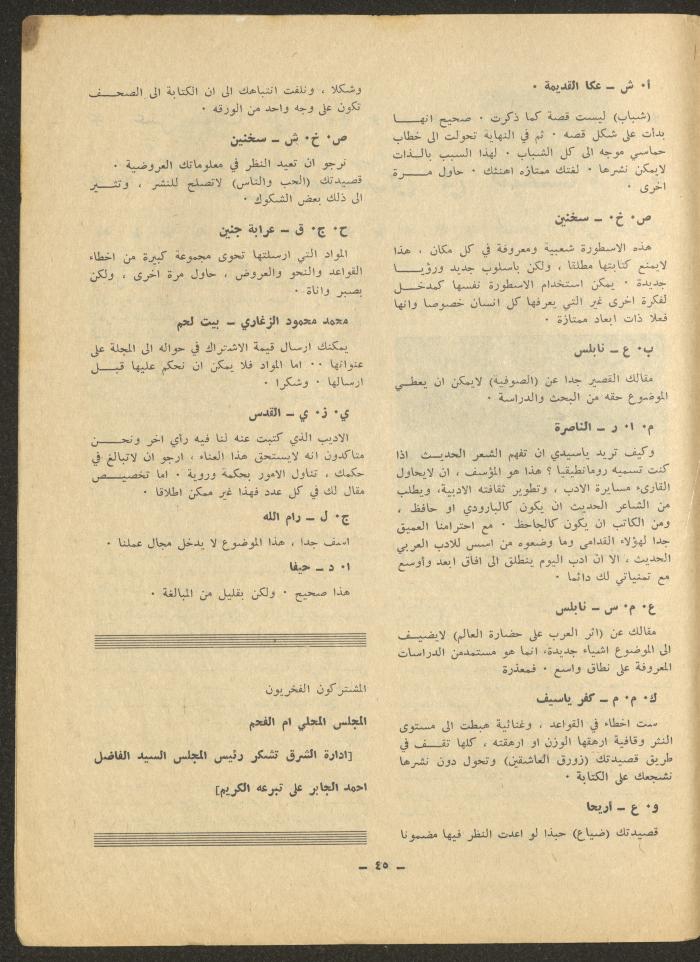 أ٠ ش ــ عكا القديمة ٠
(شباب) ليست قصة كما ذكرت ٠ صحيح انهــا
بدأت على شكل قصه ٠ ثم في النهاية تحولت الى خطاب
حماسي موجه الى كل الشباب ٠ لهذا السبب بالــذات
لايمكن نشرها ٠ لغتك ممتازه اهنئك ٠ حاول مــرة
اخرى ٠
ص٠ خ٠ ــ سخنين
هذه الاسطورة شعبية ومعروفة في كل مكان ، هذا
لايمنع كتابتها مطلقا ، ولكن باسلوب جديد ورؤيــا
جديدة ٠ يمكن استخدام الاسطورة نفسها كمدخــل
لفكرة اخرى غير التي يعرفها كل انسان خصوصا وانها
فعلا ذات ابعاد ممتازة ٠
ب٠ ع ــ نابلس
مقالك القصير جدا عن (الصوفية) لايمكن ان يعطــي
الموضوع حقه من البحث والدراسة ٠
م٠ ا٠ ر ــ الناصرة
وكيف تريد ياسيدي ان تفهم الشعر الحديــث اذا
كنت تسميه رومانطيقيا ؟ هذا هو المؤسف ، ان لايحاول
القارىء مسايرة الادب ، وتطوير ثقافته الادبية، ويطلب
من الشاعر الحديث ان يكون كالبارودي او حافظ ،
ومن الكاتب ان يكون كالجاحظ ٠ مع احترامنا العميق
جدا لهؤلاء القدامى وما وضعوه من اسس للادب العربي
الحديث ، الا ان ادب اليوم ينطلق الى افاق ابعد وأوسع
مع تمنياتي لك دائما ٠
ع٠ م٠ س ــ نابلس
مقالك عن (اثر العرب على حضارة العالم) لايضيــف
الى الموضوع اشياء جديدة، انما هو مستمدمن الدراسات
المعروفة على نطاق واسع ٠ فمعذرة
ك٠ م٠ م ــ كفر ياسيف
ست اخطاء في القواعد ، وغنائية هبطت الى مستوى
النثر وقافية ارهقها الوزن او ارهقته ، كلها تقــف في
طريق قصيدتك (زورق العاشقين) وتحول دون نشرها
نشجعك على الكتابة ٠
و٠ ع ــ أريحا
قصيدتك (ضياع) حبذا لو اعدت النظر فيها مضمونا
وشكلا ، ونلفت انتباهك الى ان الكتابة الى الصحــف
تكون على وجه واحد من الورقه ٠
ص٠ خ٠ ش ــ سخنين
نرجو ان تعيد النظر في معلوماتك العروضية ٠
قصيدتك (الحب والناس) لاتصلح للنشر ، وتثــير
الى ذلك بعض الشكوك ٠
ح٠ ج٠ ق ــ عرابة جنين
المواد التي ارسلتها تحوى مجموعة كبيرة من اخطاء
القواعد والنحو والعروض ، حاول مرة اخرى ، ولكن
بصبر واناة ٠
محمد محمود الزغاري ــ بيت لحم
يمكنك ارسال قيمة الاشتراك في حواله الى المجلة على
عنوانها ٠٠ اما المواد فلا يمكن ان نحكم عليها قبــل
ارسالها ٠ وشكرا ٠
ي٠ ز٠ ي ــ القدس
الاديب الذي كتبت عنه لنا فيه رأي اخر ونحــن
متاكدون انه لايستحق هذا العناء ، ارجو ان لاتبالغ في
حكمك ، تناول الامور بحكمة وروية ٠ اما تخصيــص
مقال لك في كل عدد فهذا غير ممكن اطلاقا ٠
ج٠ ل ــ رام الله
اسف جدا ، هذا الموضوع لا يدخل مجال عملنا ٠
ا٠ د ــ حيفا
هذا صحيح ٠ ولكن بقليل من المبالغة ٠
المشتركون الفخريون
المجلس المحلي ام الفحم
[ادارة الشرق تشكر رئيس المجلس السيد الفاضل
احمد الجابر على تبرعه الكريم]
ــ ٤٥ ــ